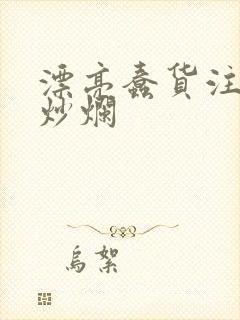 漂亮蠢货注
炒爛
烏絮